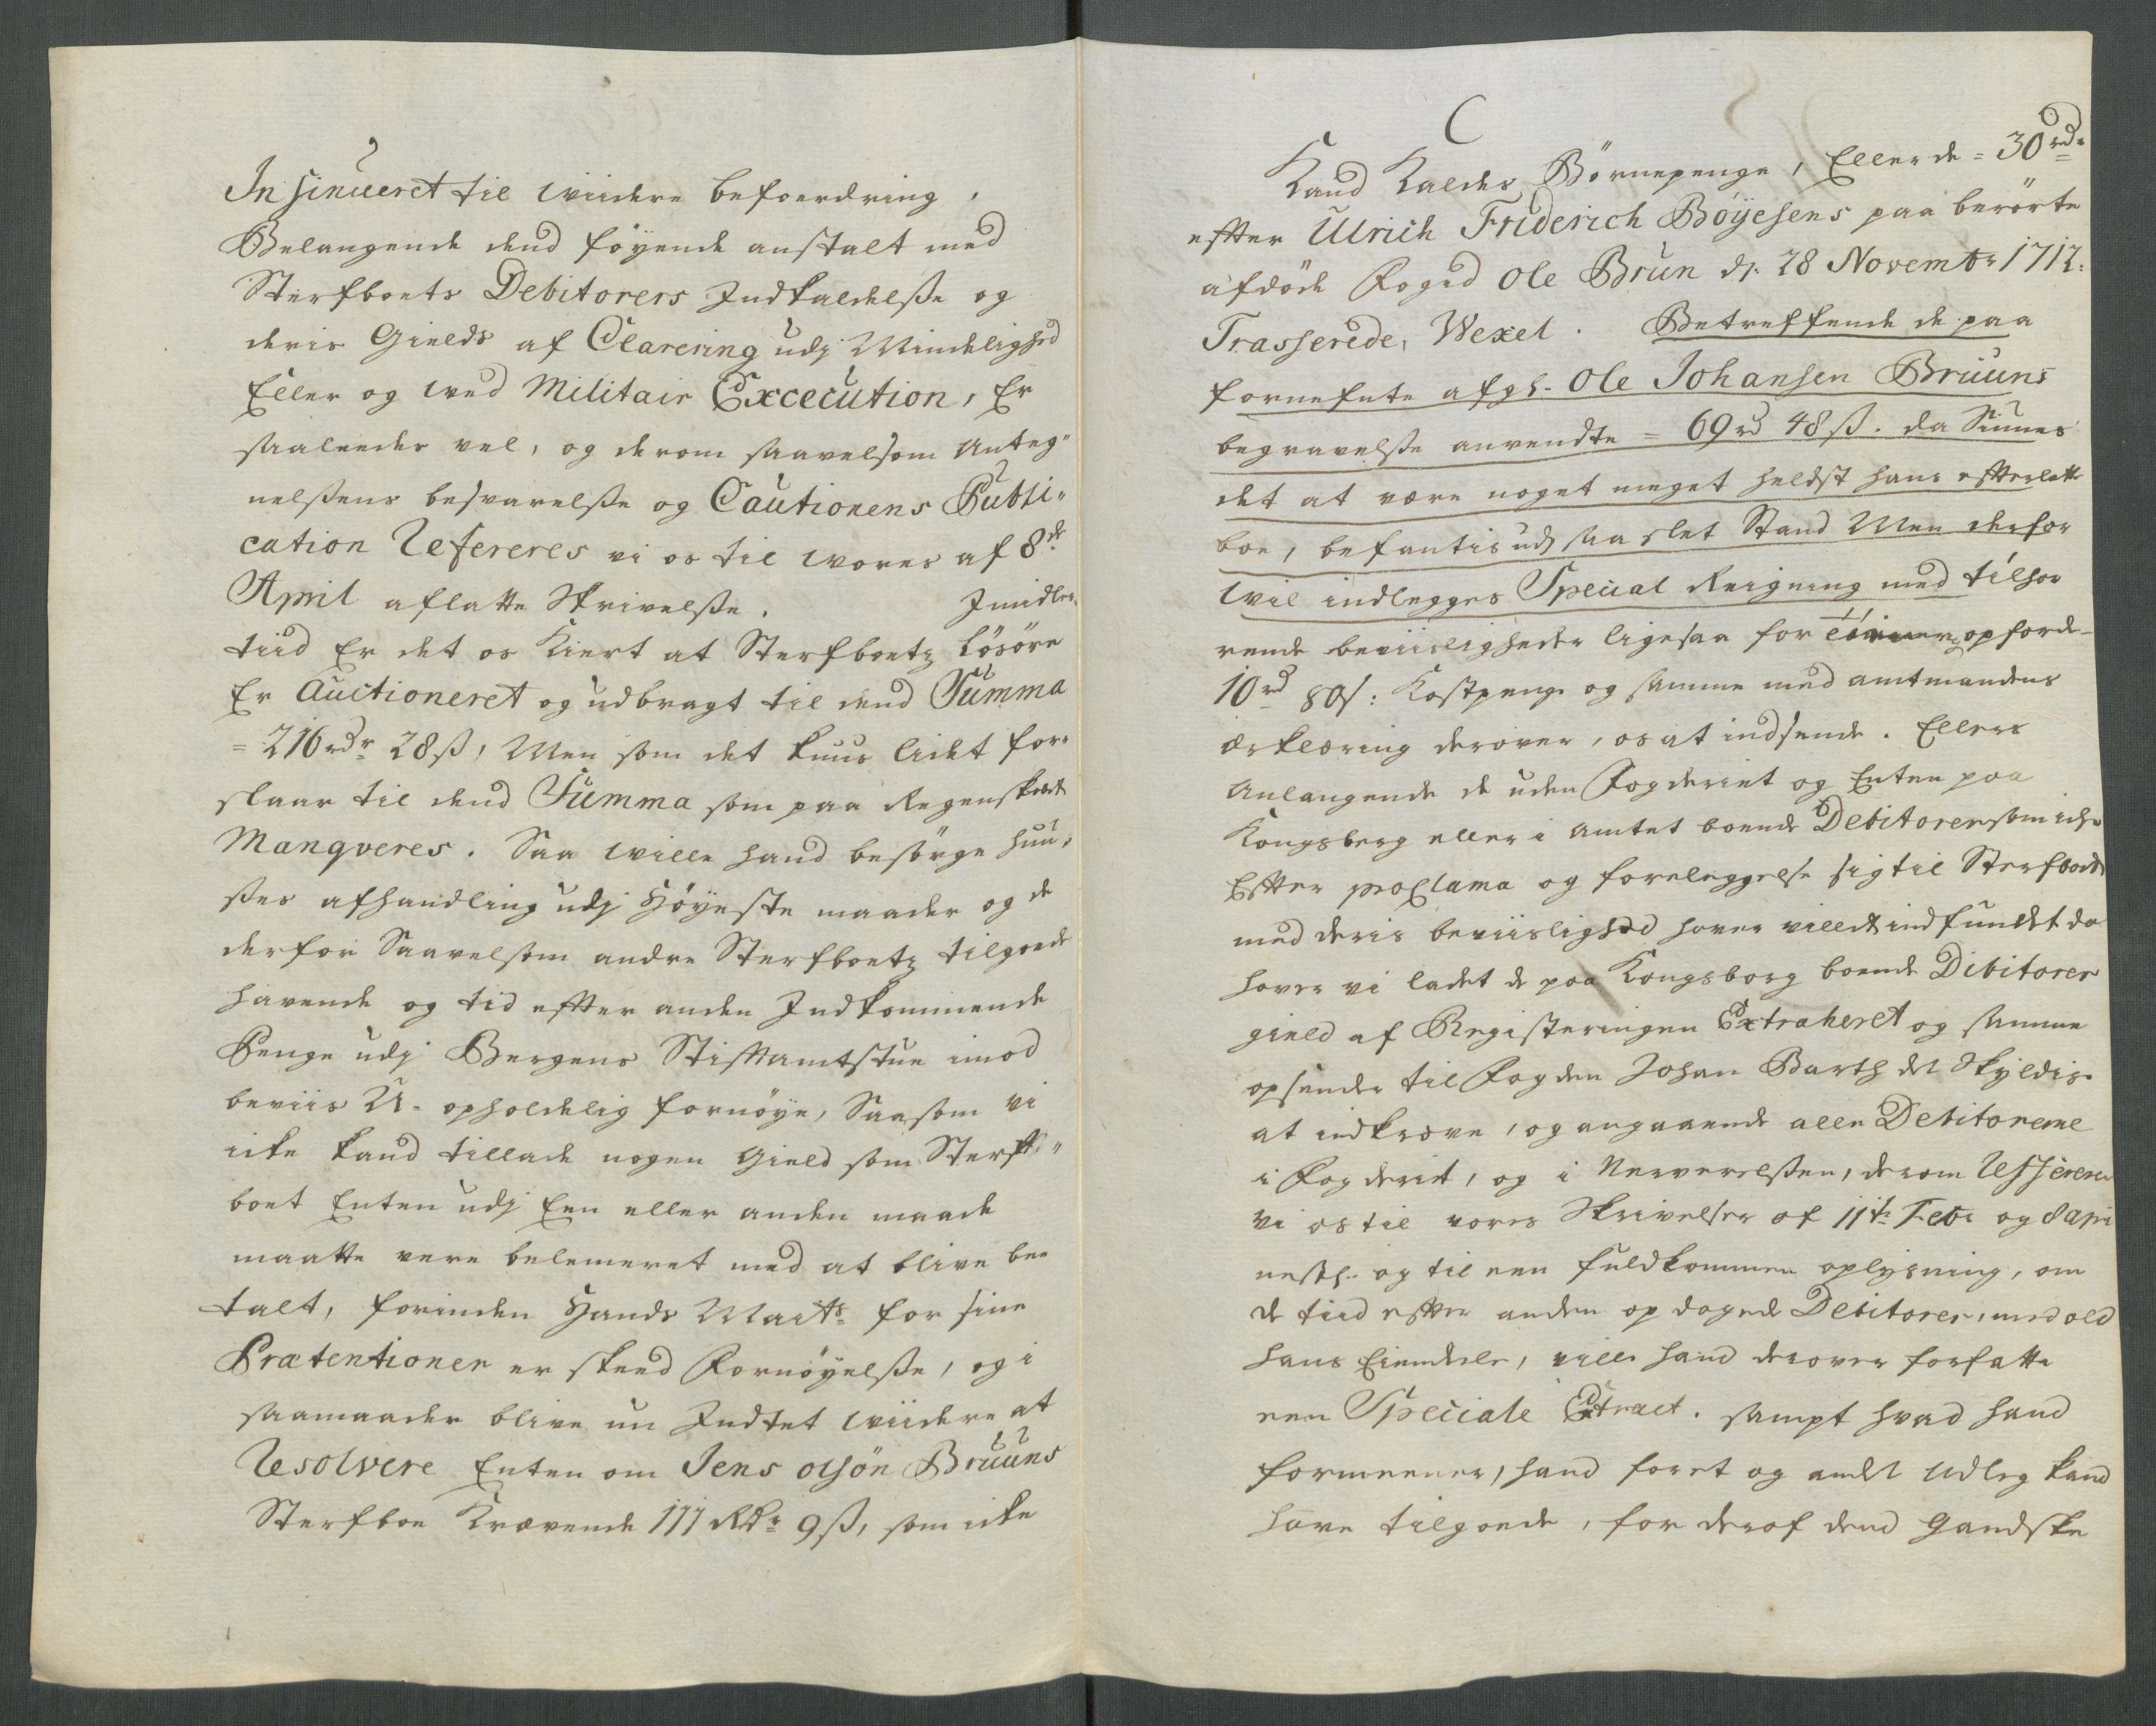 Insinueret til wiidere befoerdring,
Belangende dend föyende anstalt med
Sterfboets Debitorers Indkaldelsße og
deris Gields af Clarering udj Mindelighed
Eller og wed Militair Excecution, Er
saaleedes vel, og derom saavelsom Anteg"
nelsßens besvarelsße og Cautionens Publi"
cation Refereres vi os til wores af 8de
April aflatte Skrivelsße. Imidler,
tiid Er det os Kiert at Sterfboetz Lösöre
Er Auctioneret og udbragt til dend Summa
= 216 rdr 28 ß, Men som det kuns lidt for,
slaar til dend Summa som paa Regenskabet
Manqveres. Saa wille hand besörge Huu,
sßes afhandling udj Höyeste maader og de
derfor Saavelsom andre Sterfboetz tilgoede
havende og tid effter anden Indkommende
Penge udj Bergens Stifftamtstue imod
beviis U-opholdelig fornöye, Saasom vi
icke kand tillade nogen Gield som Sterff"
boet Enten udj Een eller anden maade
maatte være belemeret med at blive bee
talt, forinden Hands Maits for sine
Prætentioner er skeed Fornöyelsße, og i
saamaader blive nu Indtet wiidere at
Resolvere Enten om Jens olsön Bruuns
Sterfboe Krævende 111 Rdr 9 ß, som icke
C
Kand Kaldes Börnepenge, Eller de = 30 rdr
effter Ulrich Friderich Böyesens paa berörte
afdöde Foged Ole Brun d. 28 Novembr 1712:
Trasserede, Wexel. Betreffende de paa
fornefnte afgl. Ole Johansen Bruuns
begravelsße anvendte = 69 rd 48 ß. da Siunes
det at være noget meget heldst hans effterlatte
boe, befantis udj saa slet Stand Men derfor
wil indlegges Special Reigning med tilhör
rende beviisligheder ligesaa for opforde-
10 rd 80 s: Kostpenge og samme med amtmandens
ærklæring derover, os at indsende. Ellers
Anlangende de uden Fogderiet og Enten paa
Kongsberg eller i Amtet boende Debitorer som iche
Effter proClama og foreleggelse sig til Sterfboedet
med deris beviislighed haver villet indfundet da
haver vi ladet de paa Kongsborg boende Dibitorer
gield af Registeringen Extraheret og samme
opsender til Fogden Johan Barth det Skyldige
at indkræve, og angaaende alle Debitorerne
i Fogderiet, og i Nerverelsßen, derom Refferere
vi os til vores Skrivelser af 11te Febr og 8 apri
nestl. og til een fuldkommen oplysning, om
de tiid effter anden opdagede Debitorer, med ald
hans Eiendele, ville hand derover forfatte
een Speciale Extract. sampt hvad hand
formeener, hand foret og andet Udleg kand
have tilgoede, for deraf dend Gandske